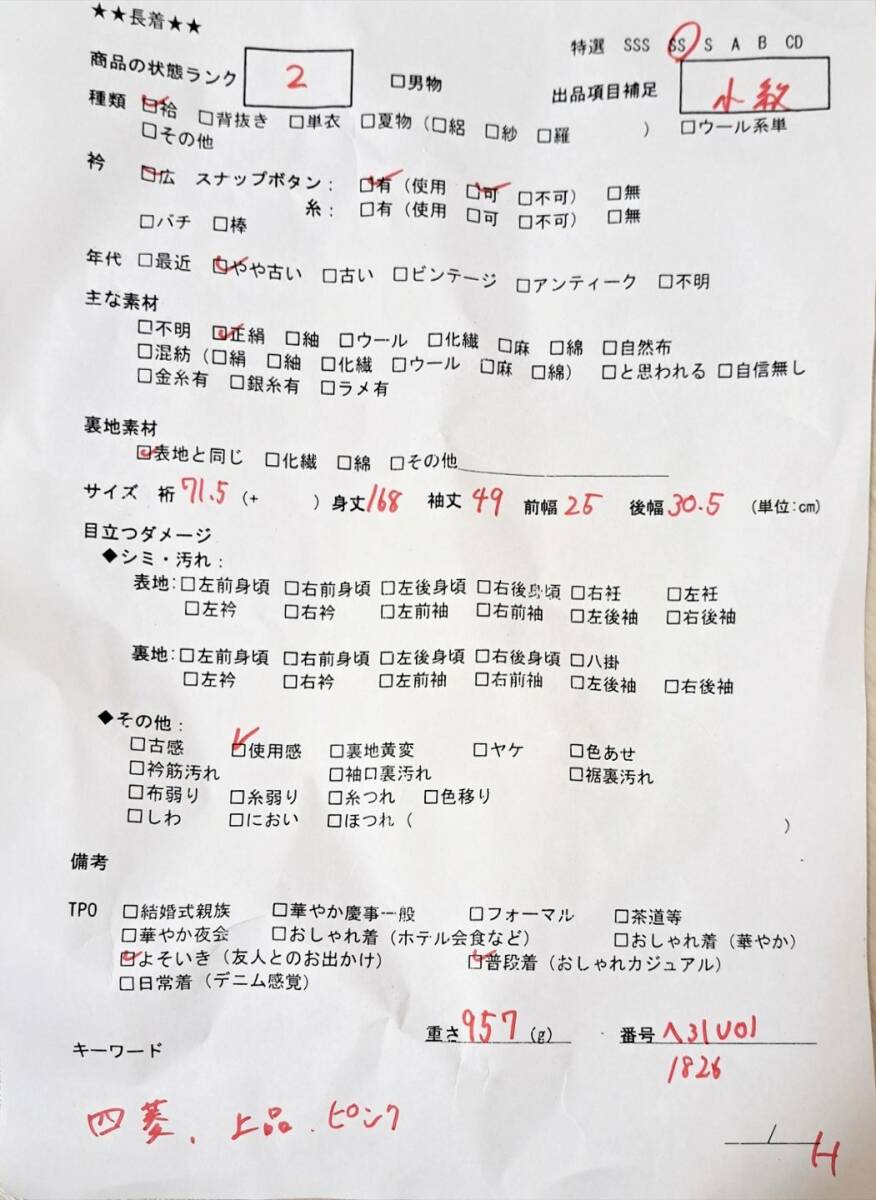 ★★長着★★
特選 SSS SS S A B CD
商品の状態ランク 2 □男物 出品項目補足 小紋
種類 □袷 □背抜き □単衣 □夏物（□絽 □紗 □羅 ） □ウール系単
□その他
衿 □広 スナップボタン： □有（使用 □可 □不可） □無
糸： □有（使用 □可 □不可） □無
□バチ □棒
年代 □最近 □やや古い □古い □ビンテージ □アンティーク □不明
主な素材
□不明 □正絹 □紬 □ウール □化繊 □麻 □綿 □自然布
□混紡（□絹 □紬 □化繊 □ウール □麻 □綿） □と思われる □自信無し
□金糸有 □銀糸有 □ラメ有
裏地素材
□表地と同じ □化繊 □綿 □その他
サイズ 裄 71.5 （+ ）身丈 168 袖丈 49 前幅 25 後幅 30.5 （単位：cm）
目立つダメージ
◆シミ・汚れ：
表地：□左前身頃 □右前身頃 □左後身頃 □右後身頃 □右衽 □左衽
□左衿 □右衿 □左前袖 □右前袖 □左後袖 □右後袖
裏地：□左前身頃 □右前身頃 □左後身頃 □右後身頃 □八掛
□左衿 □右衿 □左前袖 □右前袖 □左後袖 □右後袖
◆その他：
□古感 □使用感 □裏地黄変 □ヤケ □色あせ
□衿筋汚れ □袖口裏汚れ □裾裏汚れ
□布弱り □糸弱り □糸つれ □色移り
□しわ □におい □ほつれ（ ）
備考
TPO □結婚式親族 □華やか慶事一般 □フォーマル □茶道等
□華やか夜会 □おしゃれ着（ホテル会食など） □おしゃれ着（華やか）
□よそいき（友人とのお出かけ） □普段着（おしゃれカジュアル）
□日常着（デニム感覚）
重さ 957 (g) 番号 へ31U01
1826
キーワード
四菱、上品、ピンク
/ H